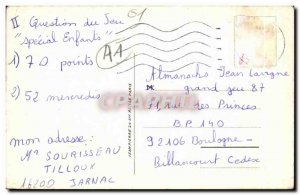 II Question du Jeu
"Spécial Enfants"
1) 70 points
2) 52 mercredis
mon adresse :
Mr SOURISSEAU
TILLOUX
16200 JARNAC
61
A1
Almanachs Jean Lavigne
grand jeu 87
rue des Princes
B.P 140
92106 Boulogne -
Billancourt Cedex